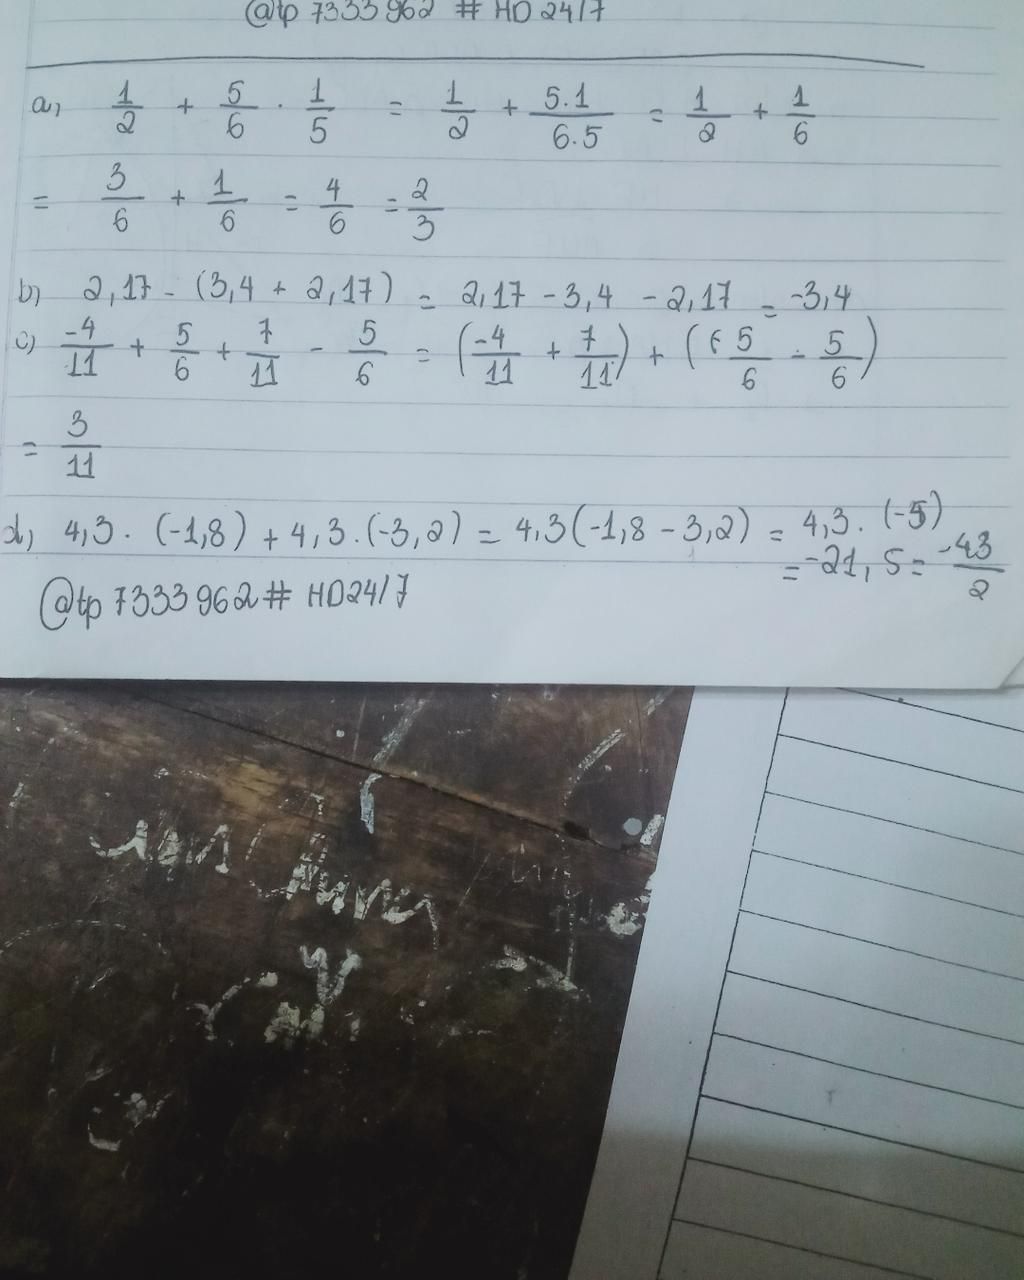 @tp 7333962 # HD 24/7
a, 1/2 + 5/6 . 1/5 = 1/2 + 5.1/6.5 = 1/2 + 1/6
= 3/6 + 1/6 = 4/6 = 2/3
b) 2,17 - (3,4 + 2,17) = 2,17 - 3,4 - 2,17 = -3,4
c) -4/11 + 5/6 + 7/11 - 5/6 = (-4/11 + 7/11) + (5/6 - 5/6)
= 3/11
d, 4,3 . (-1,8) + 4,3 . (-3,2) = 4,3(-1,8 - 3,2) = 4,3 . (-5)
= -21,5 = -43/2
@tp 7333962 # HD24/7